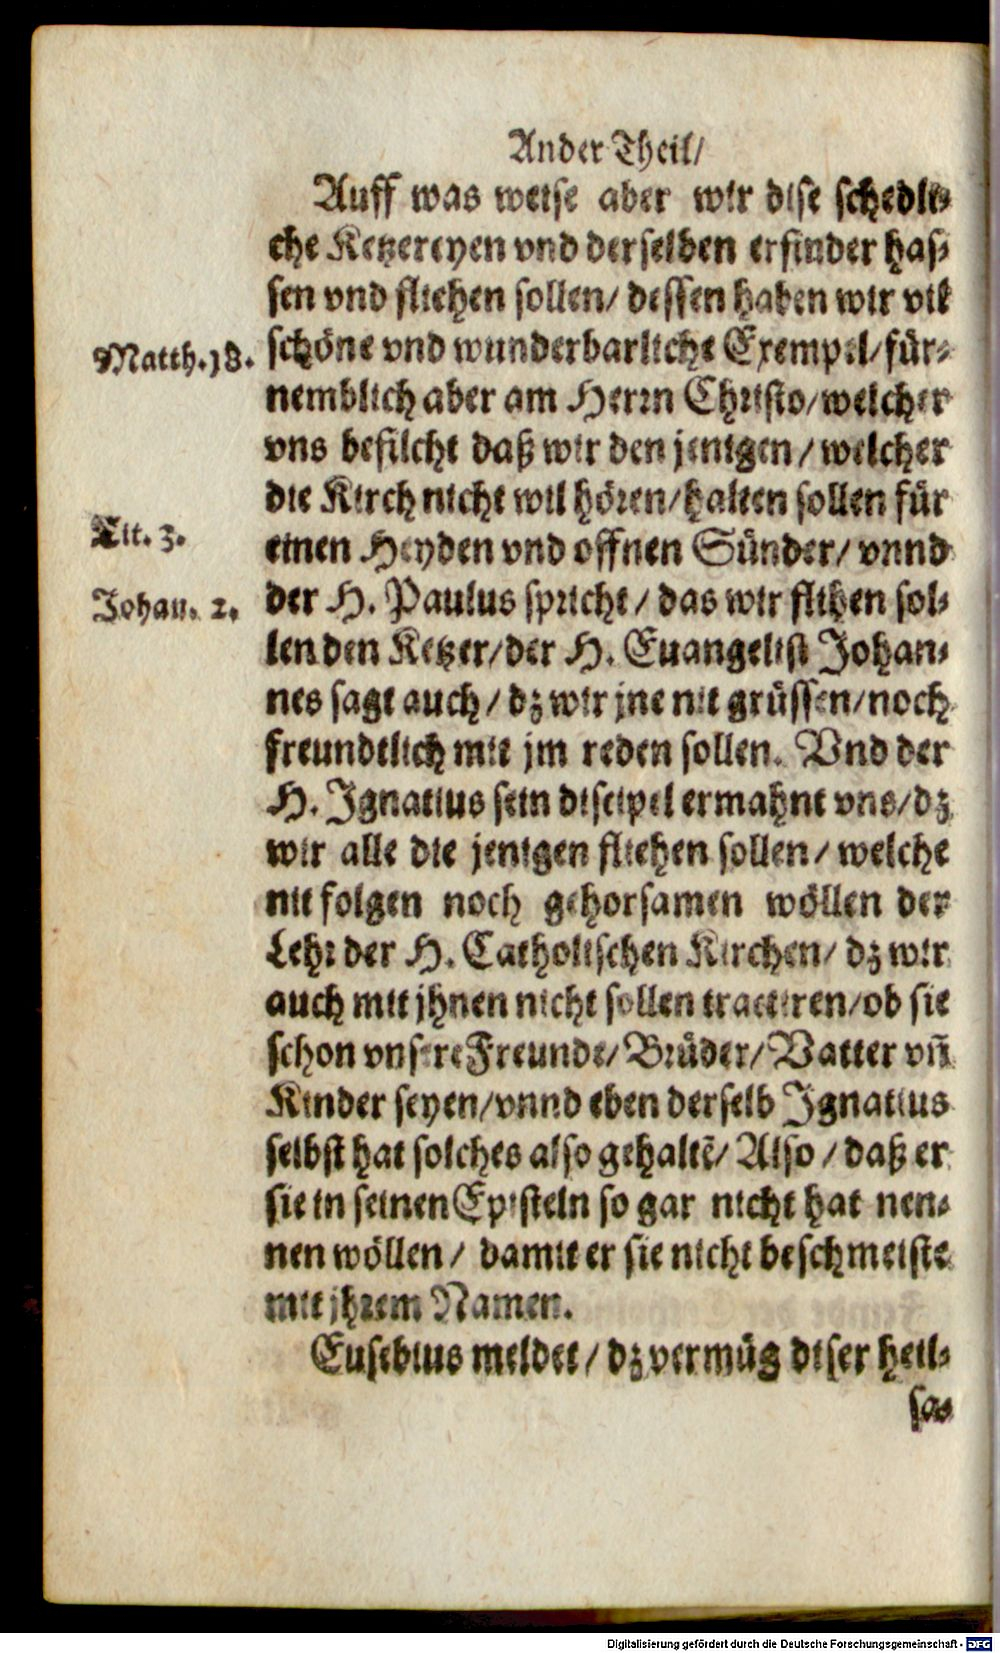 Ander Theil/
Auff was weise aber wir dise schedli-
che Ketzereyen vnd derselben erfinder has-
sen vnd fliehen sollen/ dessen haben wir vil
Matth.18.
schöne vnd wunderbarliche Exempel/für-
nemblich aber am Herrn Christo/welcher
vns befilcht daß wir den jenigen/welcher
die Kirch nicht wil hören/halten sollen für
Tit. 3.
einen Heyden vnd offnen Sünder/ vnnd
Johan. 2.
der H. Paulus spricht/ das wir flihen sol-
len den Ketzer/der H. Euangelist Johan-
nes sagt auch/ dz wir jne nit grüssen/noch
freundtlich mit jm reden sollen. Vnd der
H. Ignatius sein discipel ermahnt vns/dz
wir alle die jenigen fliehen sollen/ welche
nit folgen noch gehorsamen wöllen der
Lehr der H. Catholischen Kirchen/ dz wir
auch mit jhnen nicht sollen tractiren/ob sie
schon vnsere Freunde/Brüder/Vatter vñ
Kinder seyen/vnnd eben derselb Ignatius
selbst hat solches also gehaltē/ Also/daß er
sie in seinen Episteln so gar nicht hat nen-
nen wöllen/ damit er sie nicht beschmeiste
mit jhrem Namen.
Eusebius meldet/ dz vermüg diser heil-
sa-
Digitalisierung gefördert durch die Deutsche Forschungsgemeinschaft - DFG